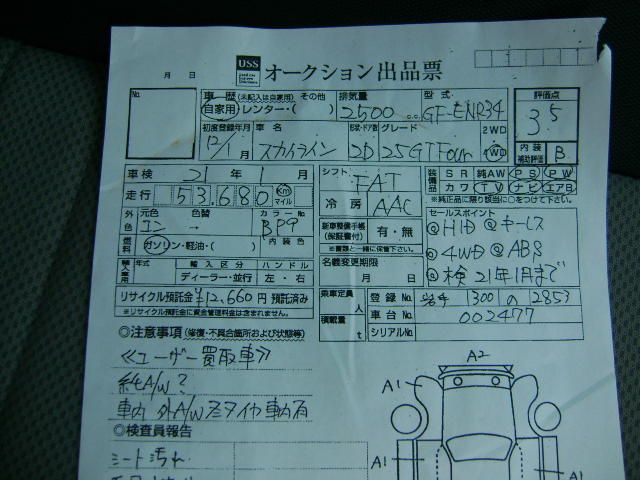 USS オークション 出品票
月 日
No.
車歴 (未記入は自家用) その他 排気量 型式 評価点
自家用 レンター・( ) 2500 cc GF-ENR34 3.5
初度登録年月 車名 形状・ドア数 グレード 2WD 内装補助評価 B
12/1月 スカイライン 2D 25GTFour 4WD
車検 21年1月 シフト FAT 装備品 SR 純AW PS PW
走行 53,680 Km マイル 冷房 AAC カワ TV ナビ エアB
※純正品に限り該当に○をつけて下さい。
外色 元色 色替 カラーNo. 新車整備手帳(保証書付) 有・無 セールスポイント
コン → BP9 ※書類と一緒に保管下さい。 @HID @キーレス
燃料 ガソリン・軽油・( ) 内装色 名義変更期限 @4WD @ABS
輸入車用 年式 輸入区分 ハンドル 月 日 @検21年1月まで
ディーラー・並行 左・右
リサイクル預託金 ¥12,660円 預託済み 乗車定員 人 登録No. 岩手 300 の 2853
※リサイクル預託金に資金管理料金は含まれません。 積載量 t 車台No. 002477
シリアルNo.
◎注意事項 (修復・不具合箇所および状態等)
≪ユーザー買取車≫
純A/W?
車内 外A/W タイヤ車内有
◎検査員報告
シート汚れ
A2
A1
A1
A1